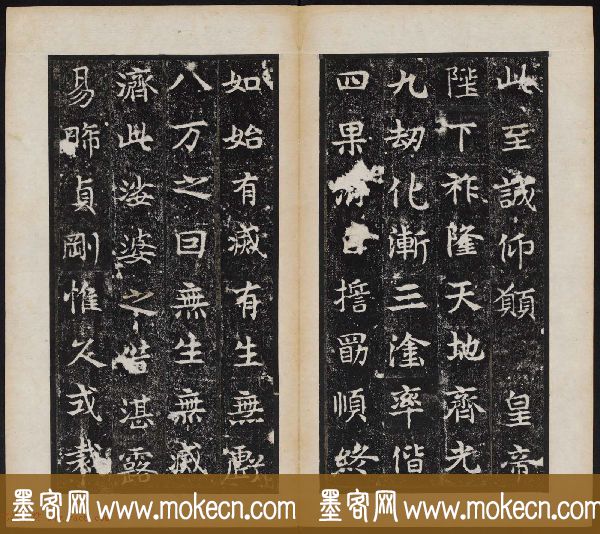 此至誠仰願 皇帝
陛下祚隆天地齊光
九劫化漸三塗率偕
四果 順終
如始有滅有生無
八万之回無生無滅
濟此娑婆之 湛露
易晞貞剛惟久式
墨客网 www.mokecn.com 墨客网 www.mokecn.com